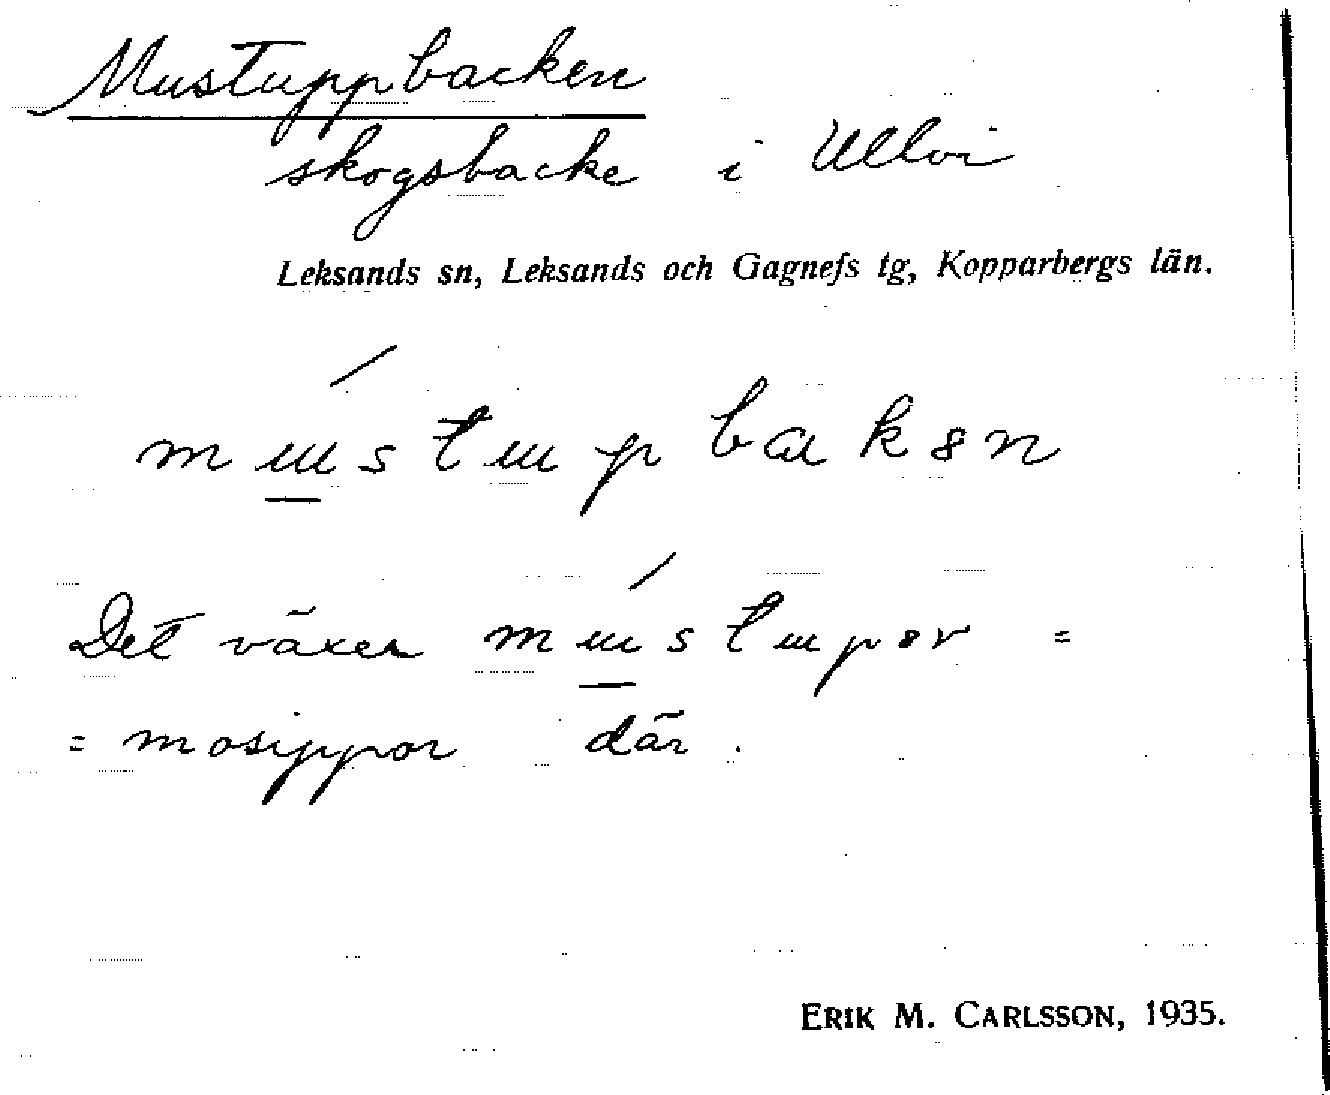 Mustuppbacken
skogsbacke i Ullvi
Leksands sn, Leksands och Gagnefs tg, Kopparbergs län.
mɯstɯpbakən
Det växer mɯstɯpər =
= mosippor där.
ERIK M. CARLSSON, 1935.